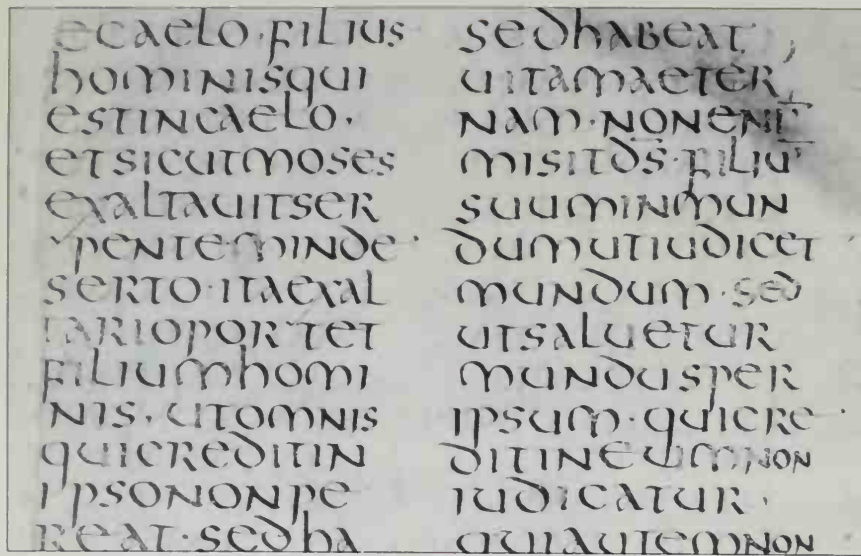 ECAELO·FILIUS
hOMINISQUI
ESTINCAELO·
ETSICUTMOSES
EXALTAUITSER
PENTEMINDE
SERTO·ITAEXAL
TARIOPORTET
FILIUMhOMI
NIS·UTOMNIS
QUICREDITIN
IPSONONPE
REAT·SEDhA
SEDhABEAT
UITAMAETER
NAM·NONENI̅
MISITD̅S̅·FILIU̅
SUUMINMUN
DUMUTIUDICET
MUNDUM·SED
UTSALUETUR
MUNDUSPER
IPSUM·QUICRE
DITINEUMNON
IUDICATUR·
QUIAUTEMNON